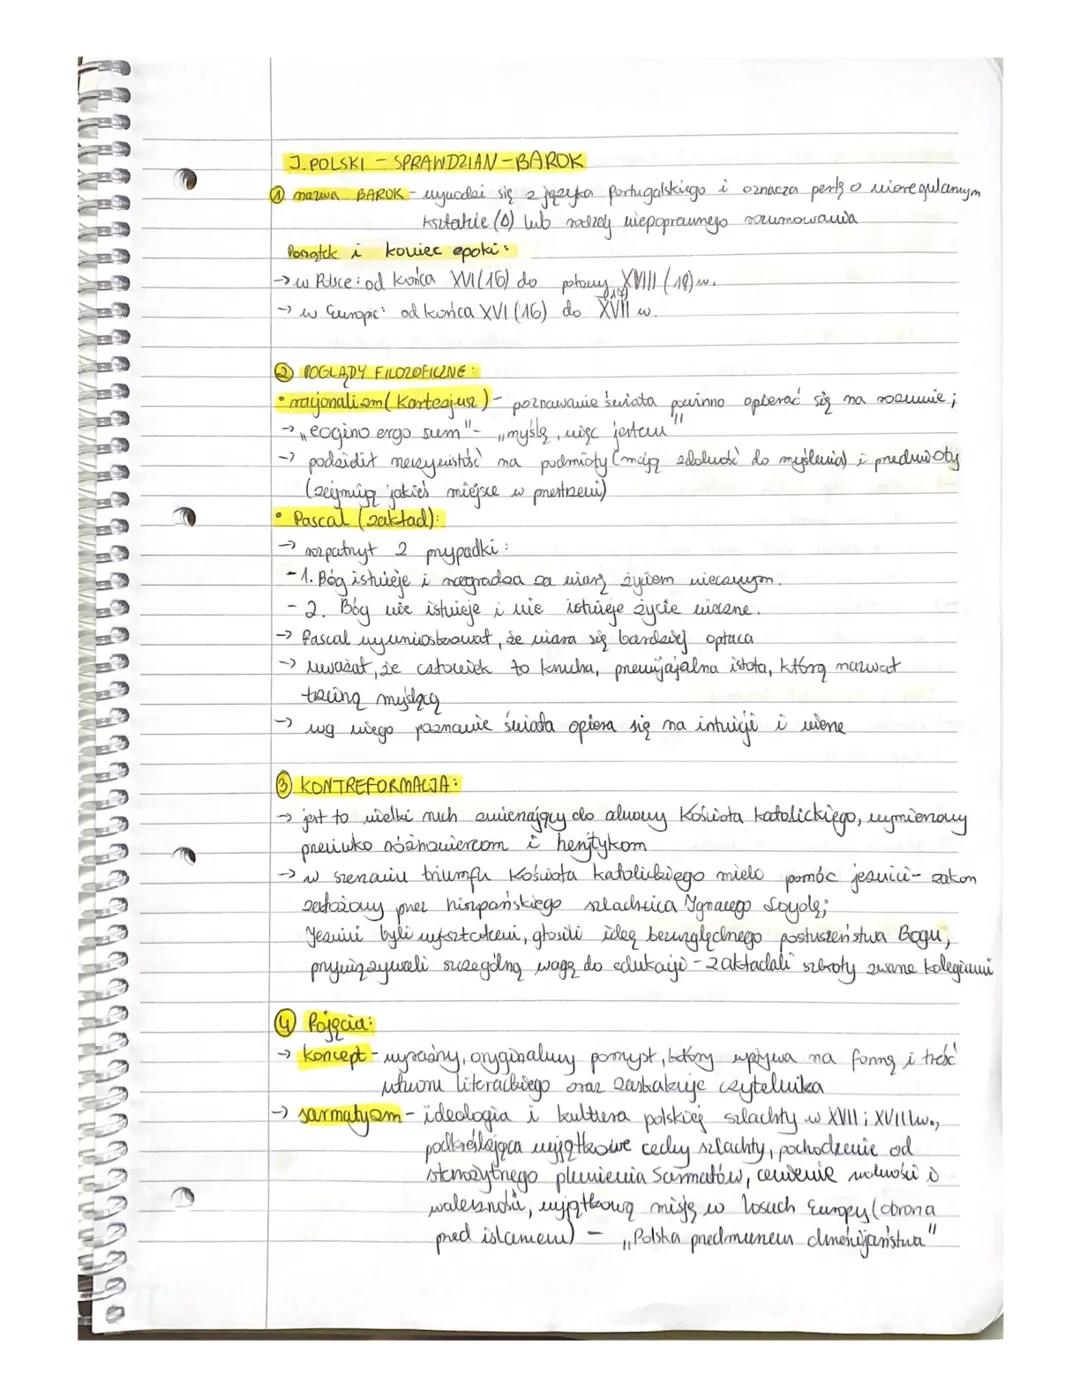 J. POLSKI - SPRAWDZIAN - BAROK
① nazwa BAROK - wywodzi się z języka portugalskiego i oznacza perłę o nieregularnym
kształcie (O) lub rodzaj niepoprawnego rozumowania
Początek i koniec epoki:
→ w Polsce: od końca XVI (16) do połowy XVIII (18) w.
→ w Europie: od końca XVI (16) do XVII (17) w.
② POGLĄDY FILOZOFICZNE:
• racjonalizm (Kartezjusz) - poznawanie świata powinno opierać się na rozumie;
→ „cogino ergo sum" - „myślę, więc jestem"
→ podzielił rzeczywistość na podmioty (mają zdolność do myślenia) i przedmioty
(zajmują jakieś miejsce w przestrzeni)
• Pascal (zakład):
→ rozpatrzył 2 przypadki:
- 1. Bóg istnieje i nagradza za wiarę życiem wiecznym.
- 2. Bóg nie istnieje i nie istnieje życie wieczne.
→ Pascal wywnioskował, że wiara się bardziej opłaca
→ uważał, że człowiek to krucha, przemijajalna istota, którą nazwał
trzciną myślącą
→ wg niego poznanie świata opiera się na intuicji i wierze
③ KONTREFORMACJA:
→ jest to wielki ruch zmierzający do odnowy Kościoła katolickiego, wymierzony
przeciwko różnowiercom i heretykom
→ w szerzeniu triumfu Kościoła katolickiego mieli pomóc jezuici - zakon
założony przez hiszpańskiego szlachcica Ignacego Loyolę;
Jezuici byli wykształceni, głosili ideę bezwzględnego posłuszeństwa Bogu,
przywiązywali szczególną wagę do edukacji - zakładali szkoły zwane kolegiami
④ Pojęcia:
→ koncept - wyraźny, oryginalny pomysł, który wpływa na formę i treść
utworu literackiego oraz zaskakuje czytelnika
→ sarmatyzm - ideologia i kultura polskiej szlachty w XVII i XVIII w.,
podkreślająca wyjątkowe cechy szlachty, pochodzenie od
starożytnego plemienia Sarmatów, cenienie wolności i
waleczności, wyjątkową misję w losach Europy (obrona
przed islamem) - „Polska przedmurzem chrześcijaństwa"